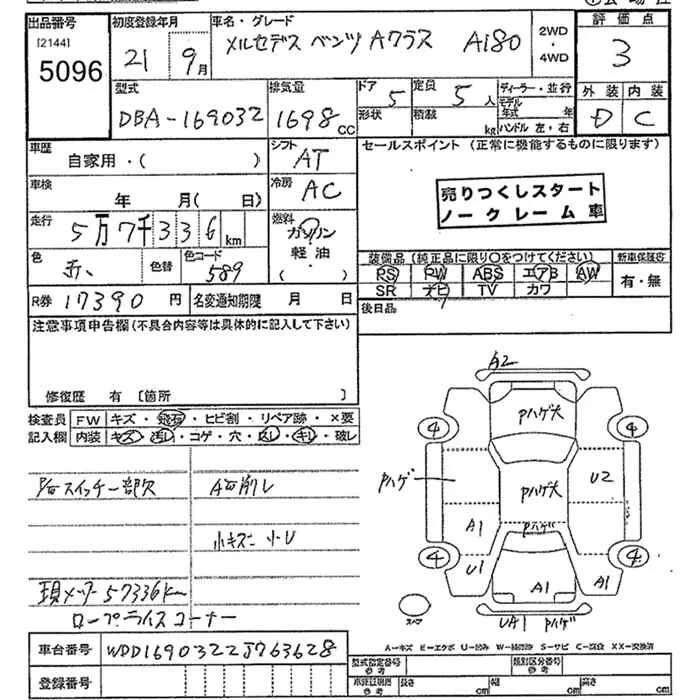 出品番号 初度登録年月 車名・グレード 2WD・4WD 評価点
[2144]
5096 21 9月 メルセデス ベンツ Aクラス A180 3
外装 内装
D C
型式 排気量 ドア 定員 ディーラー・並行
DBA-169032 1698CC 5 5人 モデル年式 年
形状 積載 kg ハンドル 左・右
車歴 シフト セールスポイント (正常に機能するものに限ります)
自家用・( ) AT
車検 冷房
年 月( 日) AC
売りつくしスタート
ノークレーム車
走行 燃料
5万7千336km ガソリン
軽油
( )
色 色替 色コード
589
装備品 (純正品に限り○をつけてください) 新車保証書
PS PW ABS エアB AW 有・無
SR ナビ TV カワ
R券 17390円 名変通知期限 月 日
後日品
注意事項申告欄(不具合内容等は具体的に記入して下さい)
修復歴 有 [箇所 ]
検査員 FW キズ・飛石・ヒビ割・リペア跡・×要
記入欄 内装 キズ・汚レ・コゲ・穴・・キレ・破レ
スイッチ一部欠
小キズ 小U
現メーター57336km
ロープライスコーナー
A2
Pハゲ大
4 4
Pハゲ Pハゲ大 U2
A1 Pハゲ
4 4
U1 A1 A1
スペア UA1 Pハゲ
A-キズ E-エクボ U-凹み W-補修跡 S-サビ C-腐食 XX-交換済
車台番号 WDD1690322J763628
型式指定番号 参考 類別区分番号 参考
登録番号
参考 長さ cm 幅 cm 高さ cm